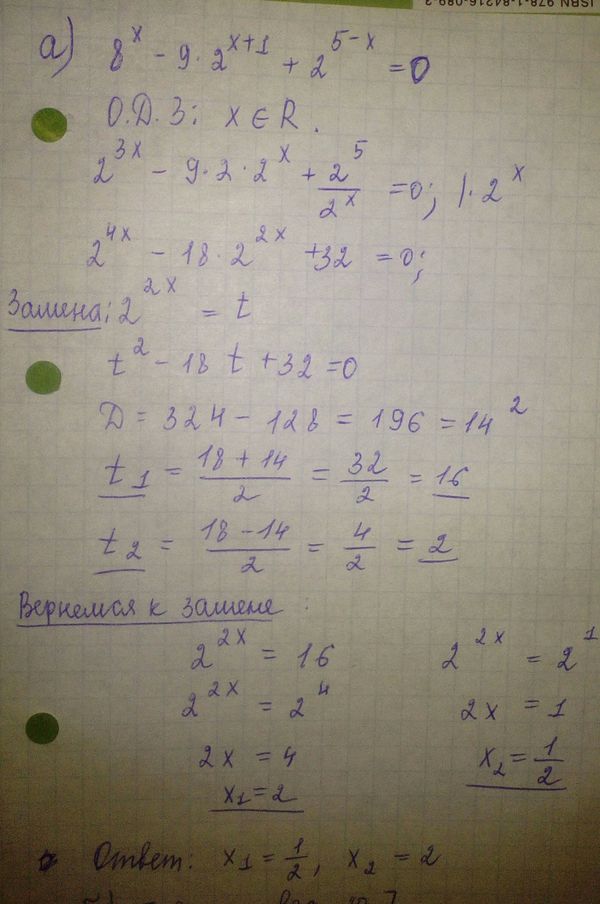 ISBN 978-1-84216-089-3
а) 8^x − 9·2^{x+1} + 2^{5−x} = 0
О.Д.З: x ∈ R.
2^{3x} − 9·2·2^x + \frac{2^5}{2^x} = 0; |·2^x
2^{4x} − 18·2^{2x} + 32 = 0;
Замена: 2^{2x} = t
t^2 − 18t + 32 = 0
D = 324 − 128 = 196 = 14^2
t_1 = \frac{18+14}{2} = \frac{32}{2} = 16
t_2 = \frac{18−14}{2} = \frac{4}{2} = 2
Вернемся к замене:
2^{2x} = 16 2^{2x} = 2^1
2^{2x} = 2^4 2x = 1
2x = 4 x_2 = \frac{1}{2}
x_1 = 2
Ответ: x_1 = \frac{1}{2}, x_2 = 2